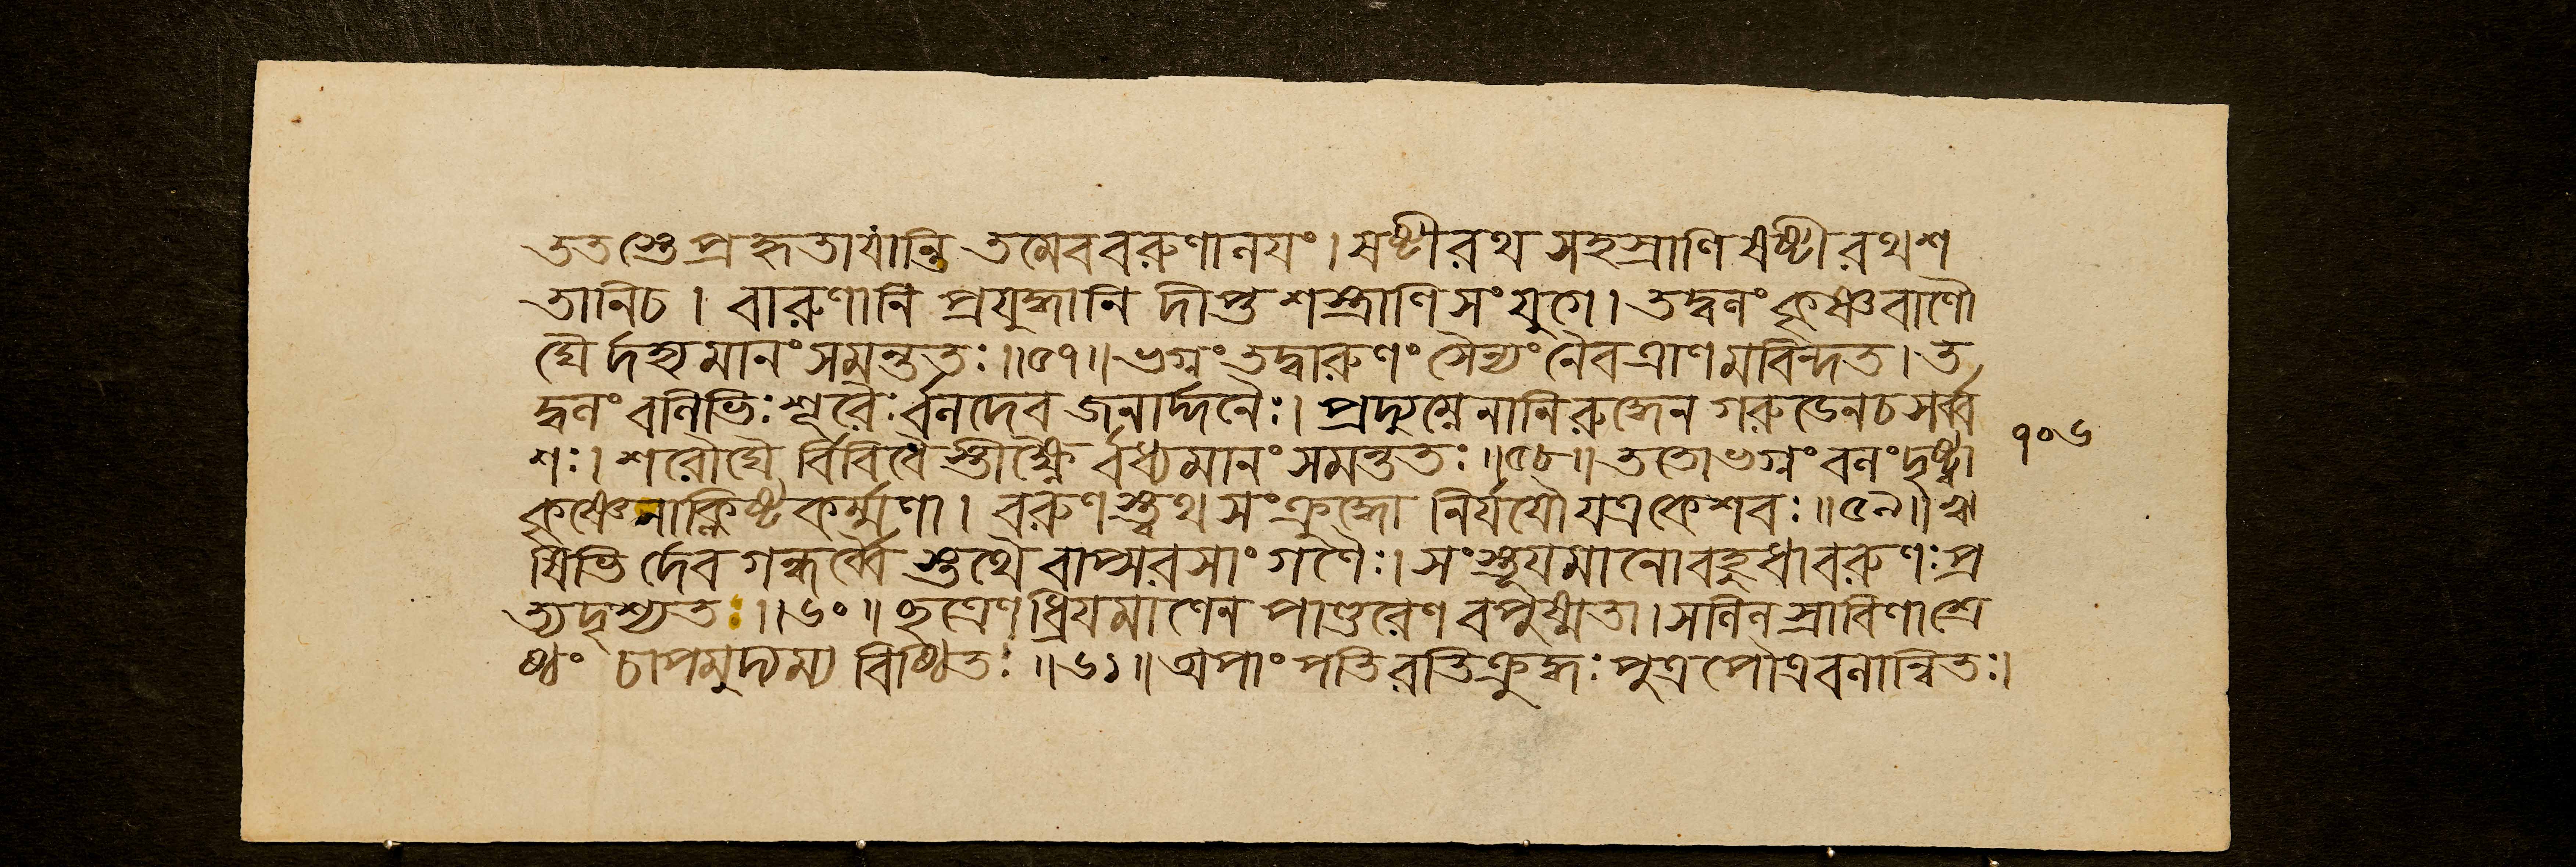 ততস্তে প্রহৃতা যান্তি তমেব বরুণালযং। ষষ্টীরথ সহস্রাণি ষষ্টীরথ শ
তানি চ। বারুণানি প্রযুদ্ধানি দীপ্ত শস্ত্রাণি সংযুগে। তদ্বলং কৃষ্ণ বাণৌ
ঘৈর্দহ্যমানং সমন্ততঃ॥৫৭॥ ভগ্নং তদ্বারুণং সৈন্যং নৈব ত্রাণমবিন্দত। ত
দ্বলং বলিভিঃ শূরৈঃর্বলদেব জনার্দ্দনৈঃ। প্রদ্যুম্নেনানিরুদ্ধেন গরুডেন চ সর্ব্ব
শঃ। শরৌঘৈর্বিবিধৈস্তীক্ষ্ণৈর্বধ্যমানং সমন্ততঃ॥৫৮॥ ততো ভগ্নং বলং দৃষ্ট্বা
কৃষ্ণেনাক্লিষ্টকর্ম্মণা। বরুণস্ত্বথ সংক্রুদ্ধো নির্যযৌ যত্র কেশবঃ॥৫৯॥ ঋ
ষিভির্দেব গন্ধর্ব্বৈস্তথৈবাপ্সরসাং গণৈঃ। সংস্তূযমানো বহুধা বরুণঃ প্র
ত্যদৃশ্যতঃ॥৬০॥ ছত্রেণ ধ্রিযমাণেন পাণ্ডরেণ বপুষ্মতা। সলিলস্রাবিণা শ্রে
ষ্ঠং চাপমুদ্যম্য বিষ্ঠিতঃ॥৬১॥ অপাং পতিরতিক্রুদ্ধঃ পুত্র পৌত্র বলান্বিতঃ।
১০৬